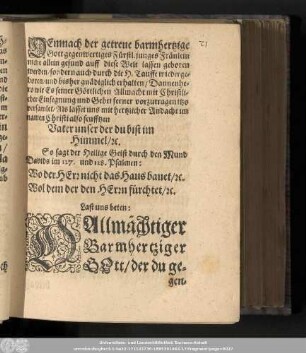 DEnnach der getreue barmhertzige
Gott gegenwertiges Fürstl. junges Fräulein
nicht allein gesund auff diese Welt lassen geboren
werden/ sondern auch durch die H. Tauffe wiederge-
boren und bißher gnädiglich erhalten/ Dannenhe-
ro wir Es seiner Göttlichen Allmacht mit Christli-
cher Einsegnung und Gebet ferner vorzutragen itzo
versamlet. Als lasset uns mit hertzlicher Andacht im
namen Christi also seufftzen
Vater unser der du bist im
Himmel/ ꝛc.
So sagt der Heilige Geist durch den Mund
Davids im 127. und 128. Psalmen:
Wo der HErr nicht das Haus bauet/ ꝛc.
Wol dem der den HErrn fürchtet/ ꝛc.
Last uns beten:
O Allmächtiger
Barmhertziger
GOtt/ der du ge-
gen-